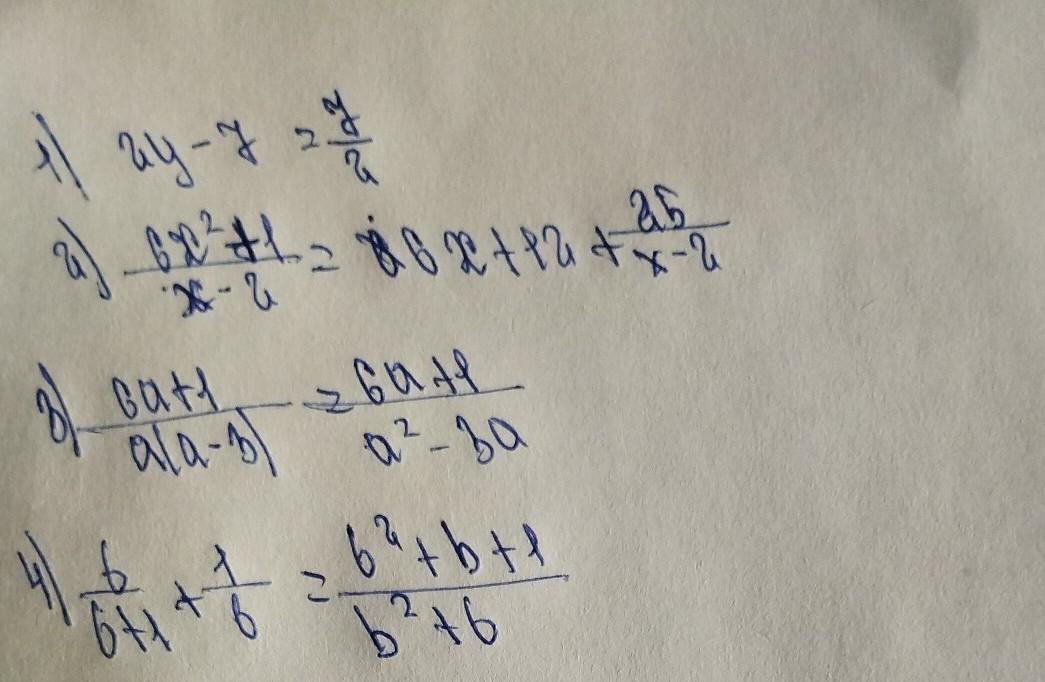 1) 2y - 7 = 7/2
2) (6x² + 1)/(x - 2) = 6x + 12 + 25/(x - 2)
3) (6a + 1)/(a(a - 3)) = (6a + 1)/(a² - 3a)
4) b/(b + 1) + 1/b = (b² + b + 1)/(b² + b)